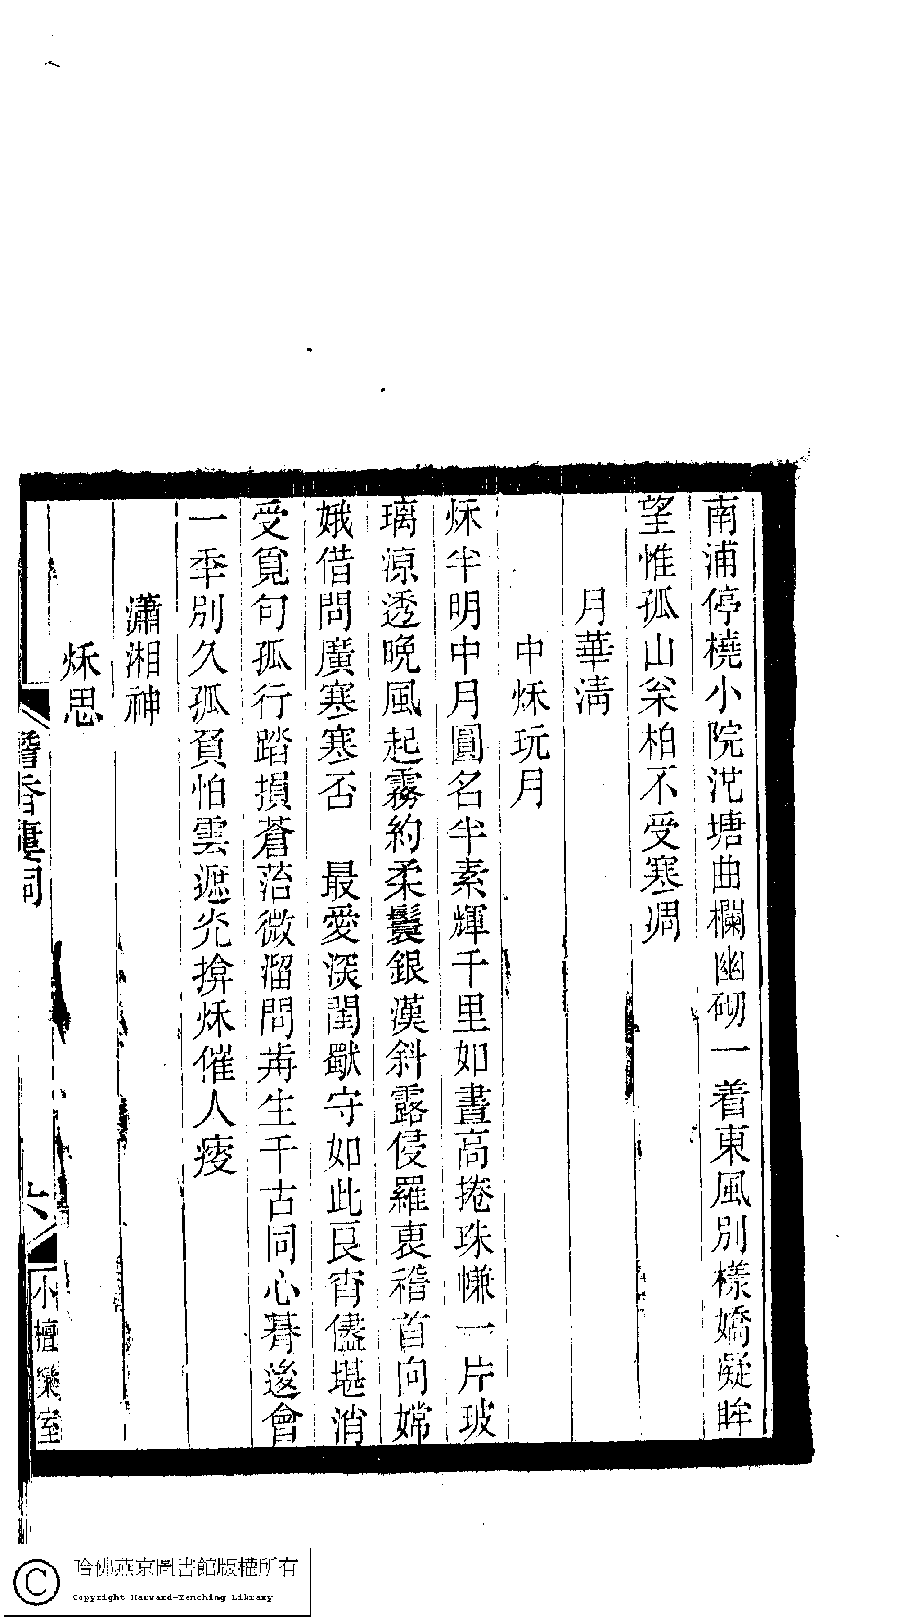 南浦停橈小院沱塘曲欄幽砌一着東風別樣嬌凝眸
望惟孤山枀柏不受寒凋
月華清
中秌玩月
秌半明中月圓名半素輝千里如晝高捲珠㡘一片玻
璃凉透晚風起霧約柔鬟銀漢斜露侵羅裏稽首向嫦
娥借問廣寒寒否　最愛深閨獸守如此良宵儘堪消
受覓句孤行踏損蒼苔微溜問苒生千古同心朞後會
一秊別久孤負怕雲遮光揜秌催人瘦
瀟湘神
秌思
簪香樓詞
六
小檀欒室
哈佛燕京圖書館版權所有
Copyright Harvard-Yenching Library